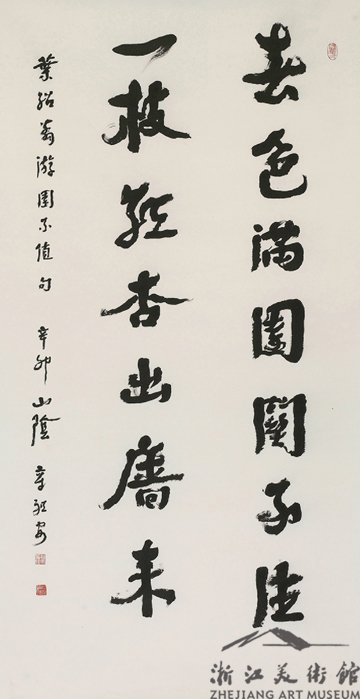 春色滿園關不住
一枝紅杏出牆來
葉紹翁游園不值句 辛卯 山陰 章祖安
浙江美術館
ZHEJIANG ART MUSEUM